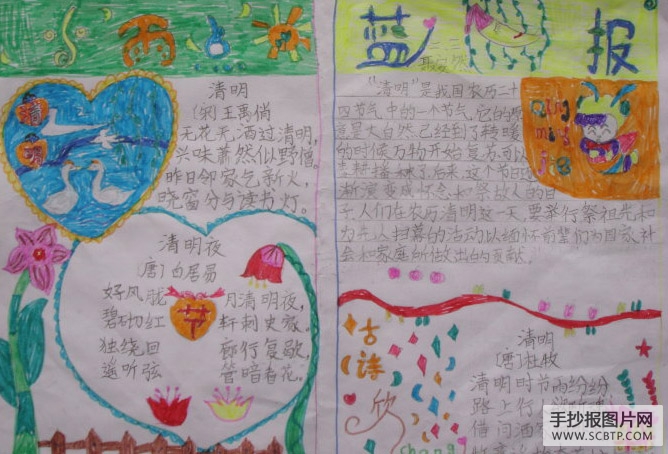 雨
蓝
报
清明
清明
(宋)王禹偁
无花无酒过清明,
兴味萧然似野僧。
昨日邻家乞新火,
晓窗分与读书灯。
清明夜
(唐)白居易
好风胧月清明夜,
碧砌红轩刺史家。
独绕回廊行复歇,
遥听弦管暗看花。
"清明"是我国农历二十
四节气中的一个节气,它的
意是大自然已经到了转暖
的时候万物开始复苏可以
了后来,这个节日逐
渐演变成怀念和祭故人的日
子,人们在农历清明这一天,要举行祭祖先和
为先人扫幕的活动以缅怀前辈们为国家,社
会和家庭所做出的贡献.
qing
ming
jie
古
诗
欣
chang
清明
[唐]杜牧
清明时节雨纷纷
路上行人
借问酒
手抄报图片网
WWW.SCBTP.COM